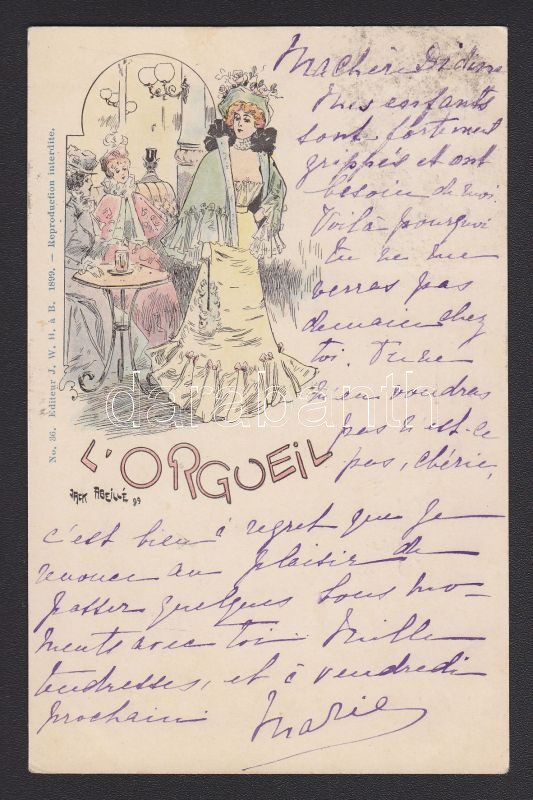 Ma chère Didine
Mes enfants
sont fortement
grippés et ont
besoin de moi.
Voilà pourquoi
tu ne me
verras pas
demain chez
toi. Tu ne
m'en voudras
pas n'est-ce
pas, chérie,
c'est bien à regret que je
renonce au plaisir de
passer quelques bons mo-
ments avec toi. Mille
tendresses, et à vendredi
prochain Marie
L'ORGUEIL
JACK ABEILLÉ 99
No. 36. Editeur J. W. B. à B. 1899. — Reproduction interdite.
darabanth